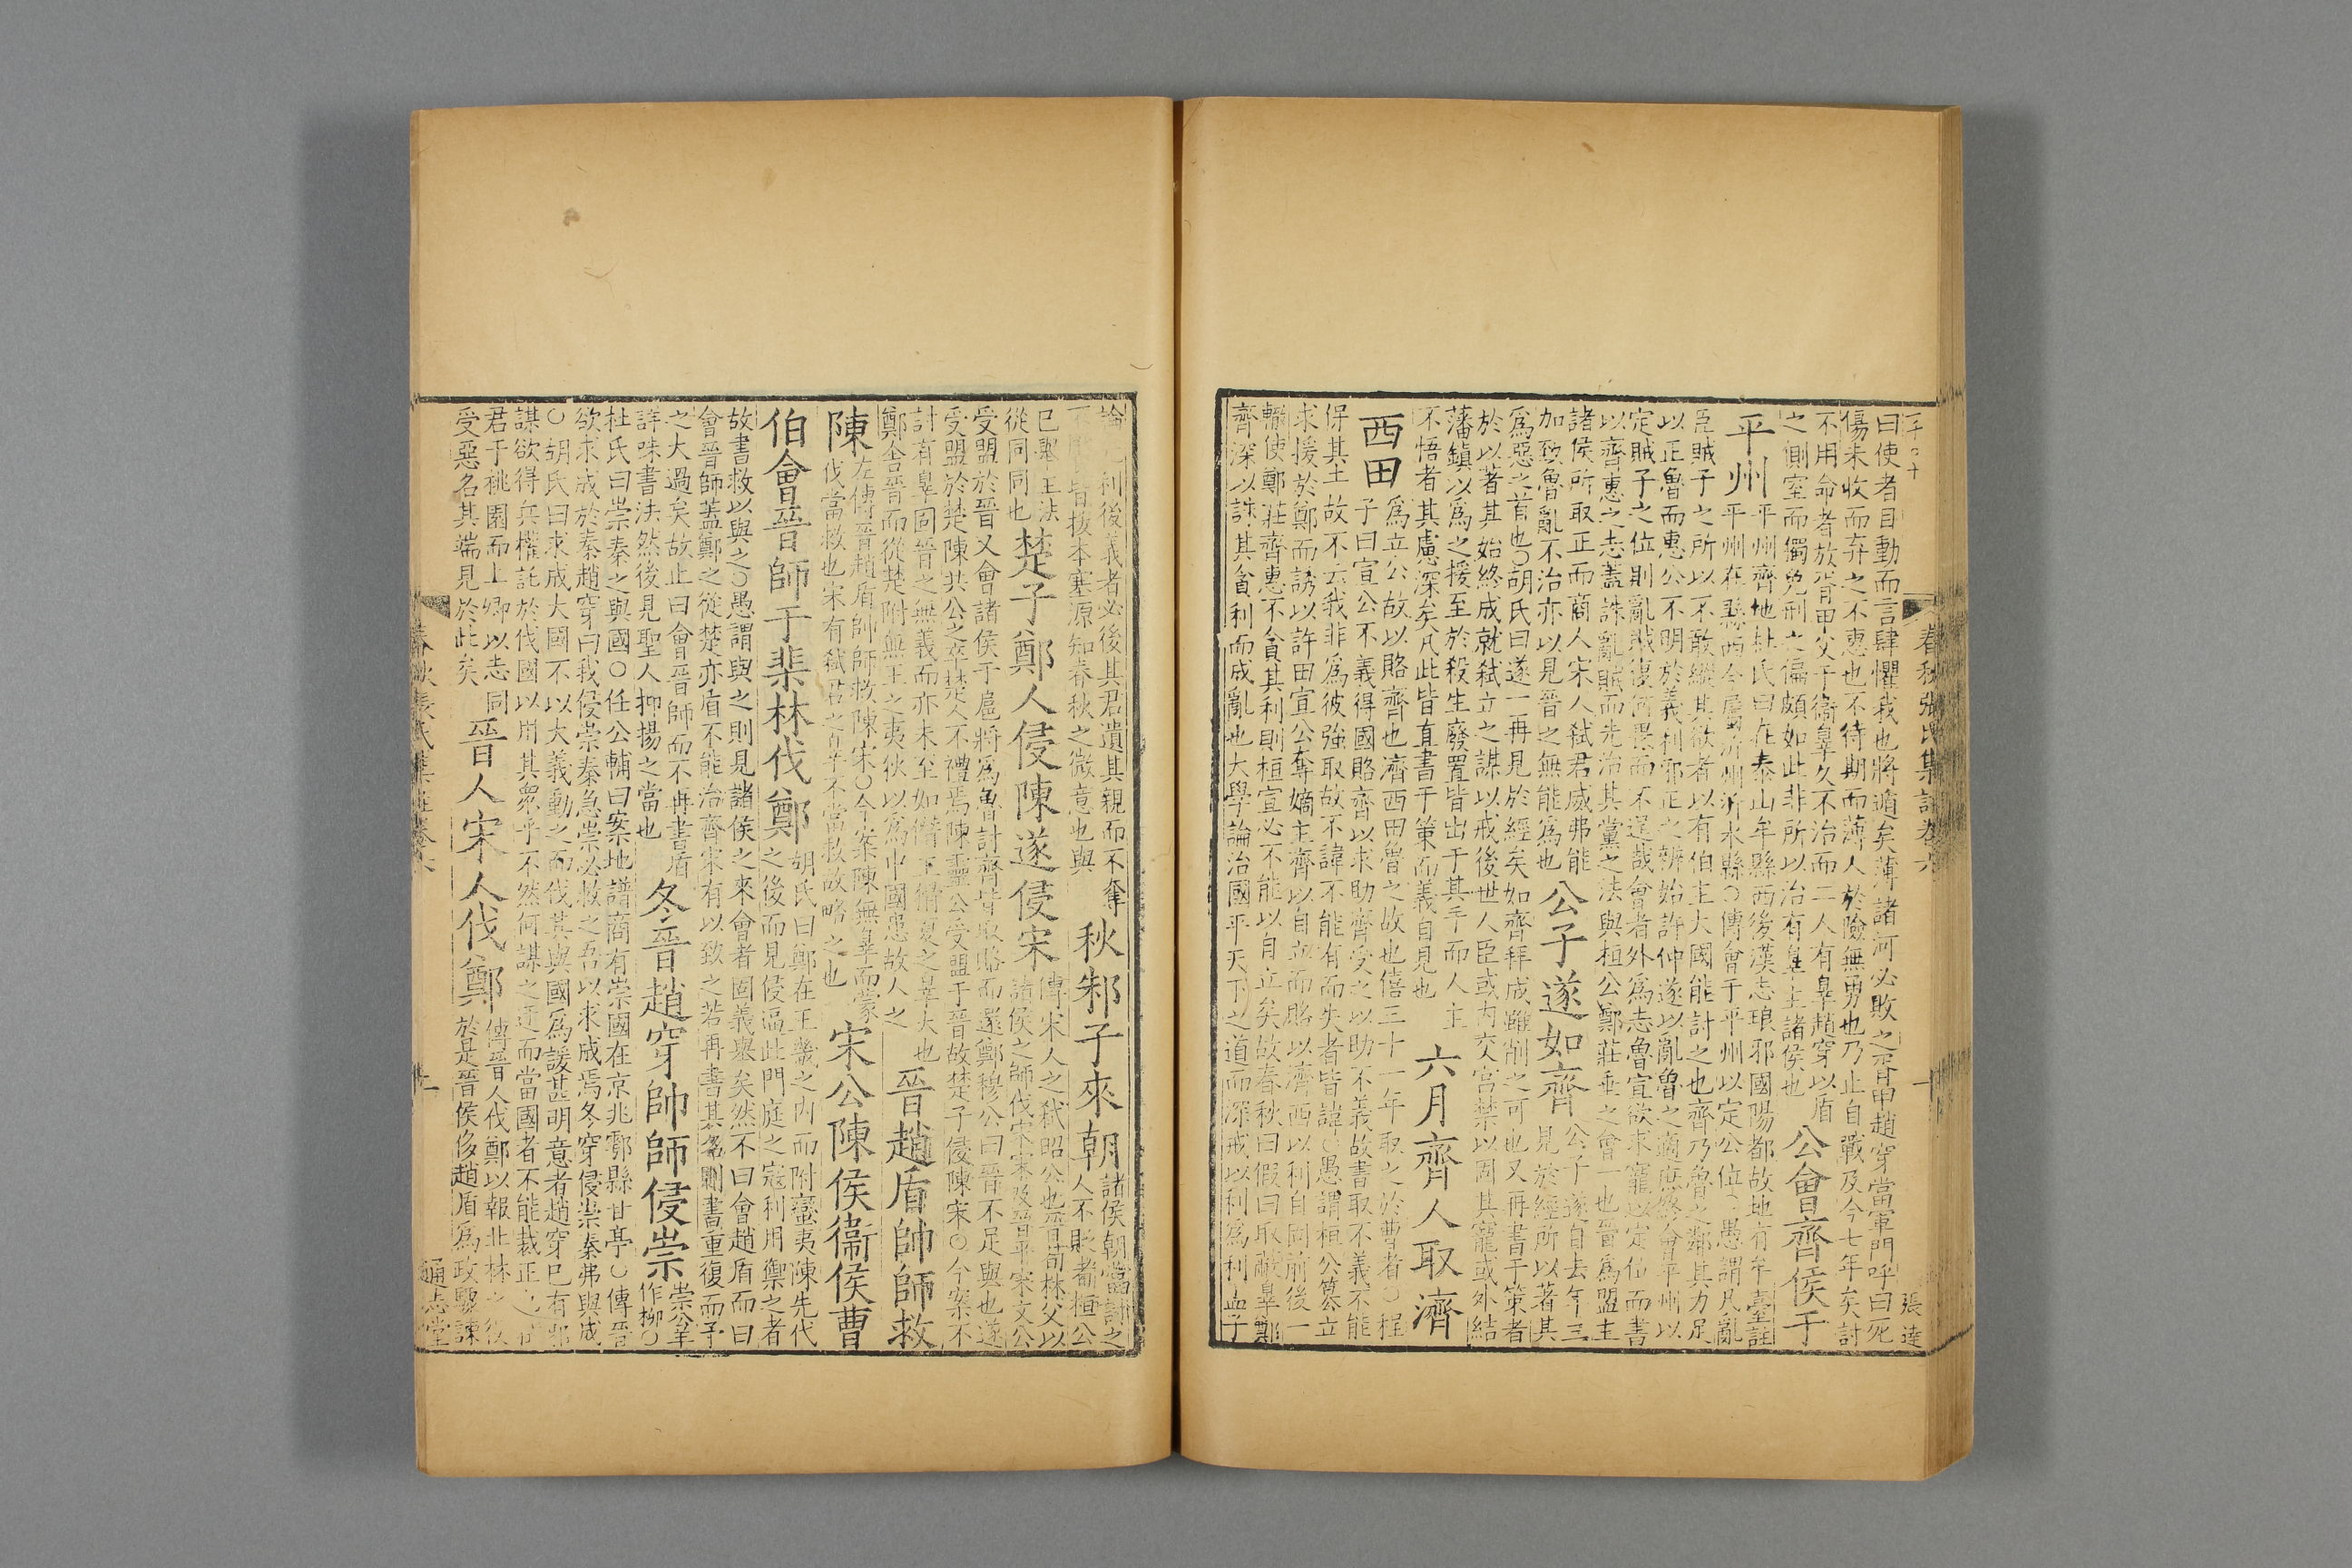 曰使者目動而言肆懼我也將遁矣薄諸河必敗之胥甲趙穿當軍門呼曰死
傷未收而弃之不惠也不待期而薄人於險無勇也乃止自戰及今七年矣討
不用命者放胥甲父于衞辠久不治而二人有辠趙穿以盾
之側室而獨免刑之偏頗如此非所以治有辠主諸侯也
公會齊侯于
平州
平州齊地杜氏曰在泰山牟縣西後漢志琅邪國陽都故地有牟臺註
平州在縣西今屬沂州沂水縣○傳會于平州以定公位○愚謂凡亂
臣賊子之所以不敢縱其欲者以有伯主大國能討之也齊乃魯之鄰其力足
以正魯而惠公不明於義利邪正之辨始許仲遂以亂魯之適庶終會平州以
定賊子之位則亂賊復何畏而不逞哉會者外為志魯宣欲求寵以定位而書
以齊惠之志蓋誅亂賊而先治其黨之法與桓公鄭莊垂之會一也晉為盟主
諸侯所取正而商人宋人弑君咸弗能
加致魯亂不治亦以見晉之無能為也
公子遂如齊
公子遂自去年三
見於經所以著其
為惡之首也○胡氏曰遂一再見於經矣如齊拜成雖削之可也又再書于策者
於以著其始終成就弑立之謀以戒後世人臣或內交宮禁以固其寵或外結
藩鎮以為之援至於殺生廢置皆出于其手而人主
不悟者其慮深矣凡此皆直書于策而義自見也
六月齊人取濟
西田
為立公故以賂齊也濟西田魯之故也僖三十一年取之於曹者○程
子曰宣公不義得國賂齊以求助齊受之以助不義故書取不義不能
保其土故不云我非為彼強取故不諱不能有而失者皆諱○愚謂桓公篡立
求援於鄭而誘以許田宣公奪嫡主齊以自立而賂以濟西以利自同前後一
轍使鄭莊齊惠不貪其利則桓宣必不能以自立矣故春秋曰假曰取蔽辠鄭
齊深以誅其貪利而成亂也大學論治國平天下之道而深戒以利為利孟子
春秋張氏集註卷六
張達
論 利後義者必後其君遺其親而不奪
不 皆拔本塞源知春秋之微意也與
秋邾子來朝
諸侯朝當討之
人不貶者桓公
已 王法
從同同也
楚子鄭人侵陳遂侵宋
傳宋人之弑昭公也晉荀林父以
諸侯之師伐宋宋及晉平宋文公
受盟於晉又會諸侯于扈將為魯討齊皆取賂而還鄭穆公曰晉不足與也遂
受盟於楚陳共公之卒楚人不禮焉陳靈公受盟于晉故楚子侵陳宋○今案不
討有辠固晉之無義而亦未至如僭王猾夏之辠大也
鄭舍晉而從楚附無王之夷狄以為中國患故人之
晉趙盾帥師救
陳
左傳晉趙盾帥師救陳宋○今案陳無辠而蒙
伐當救也宋有弑君之辠不當救故略之也
宋公陳侯衞侯曹
伯會晉師于棐林伐鄭
胡氏曰鄭在王畿之內而附蠻夷陳先代
之後而見侵逼此門庭之寇利用禦之者
故書救以與之○愚謂與之則見諸侯之來會者固義舉矣然不曰會趙盾而曰
會晉師蓋鄭之從楚亦盾不能治齊宋有以致之若再書其名則書重復而予
之大過矣故止曰會晉師而不再書盾
詳味書法然後見聖人抑揚之當也
冬晉趙穿帥師侵崇
崇公羊
作柳○
杜氏曰崇秦之與國○任公輔曰案地譜商有崇國在京兆鄠縣甘亭○傳晉
欲求成於秦趙穿曰我侵崇秦急崇必救之吾以求成焉冬穿侵崇秦弗與成
○胡氏曰求成大國不以大義動之而伐其與國為諼甚明意者趙穿已有邪
謀欲得兵權託於伐國以用其眾乎不然何謀之迂而當國者不能裁正之也
君于桃園而上卿以志同
受惡名其端見於此矣
晉人宋人伐鄭
傳晉人伐鄭以報北林之役
於是晉侯侈趙盾為政驟諫
通志堂